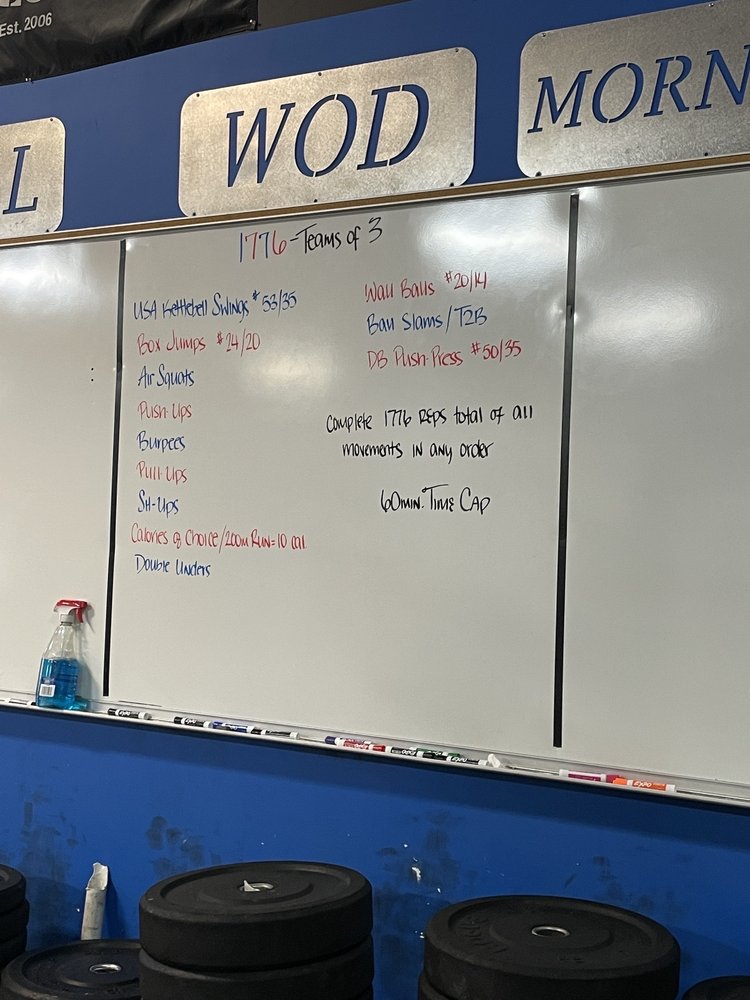 Est. 2006
L
WOD
MORN
1776-Teams of 3
USA Kettlebell Swings #53/35
Box Jumps #24/20
Air Squats
Push-Ups
Burpees
Pull-Ups
Sit-Ups
Calories of Choice/200m Run=10 cal
Double Unders
Wall Balls #20/14
Ball Slams/T2B
DB Push-Press #50/35
Complete 1776 Reps total of all
movements in any order
60min. Time Cap
EXPO
EXPO
EXPO
EXPO